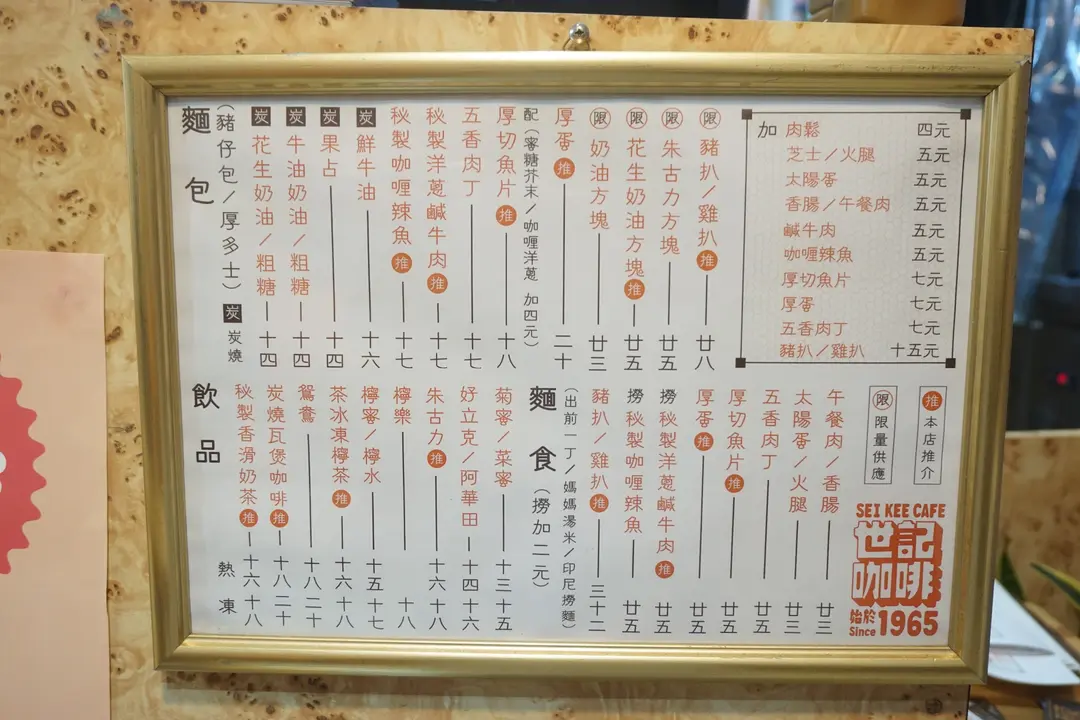 麵包
(豬仔包/厚多士) 炭 炭燒
炭 花生奶油/粗糖 十四
炭 牛油奶油/粗糖 十四
炭 果占 十四
炭 鮮牛油 十六
秘製咖喱辣魚 推 十七
秘製洋蔥鹹牛肉 推 十七
五香肉丁 十七
厚切魚片 推 十八
配(蜜糖芥末/咖喱洋蔥 加四元)
厚蛋 推 二十
限 奶油方塊 廿三
限 花生奶油方塊 推 廿五
限 朱古力方塊 廿五
限 豬扒/雞扒 推 廿八
加 肉鬆 四元
芝士/火腿 五元
太陽蛋 五元
香腸/午餐肉 五元
鹹牛肉 五元
咖喱辣魚 五元
厚切魚片 七元
厚蛋 七元
五香肉丁 七元
豬扒/雞扒 十五元
飲品
熱 凍
秘製香滑奶茶 推 十六 十八
炭燒瓦煲咖啡 推 十八 二十
鴛鴦 十八 二十
茶冰凍檸茶 推 十六 十八
檸蜜/檸水 十五 十七
檸樂 十八
朱古力 推 十六 十八
好立克/阿華田 十四 十六
菊蜜/菜蜜 十三 十五
麵食(撈加二元)
(出前一丁/媽媽湯米/印尼撈麵)
豬扒/雞扒 推 三十二
撈 秘製咖喱辣魚 廿五
撈 秘製洋蔥鹹牛肉 推 廿五
厚蛋 推 廿五
厚切魚片 推 廿五
五香肉丁 廿五
太陽蛋/火腿 廿三
午餐肉/香腸 廿三
限 限量供應
推 本店推介
SEI KEE CAFE
世記
咖啡
始於
Since 1965